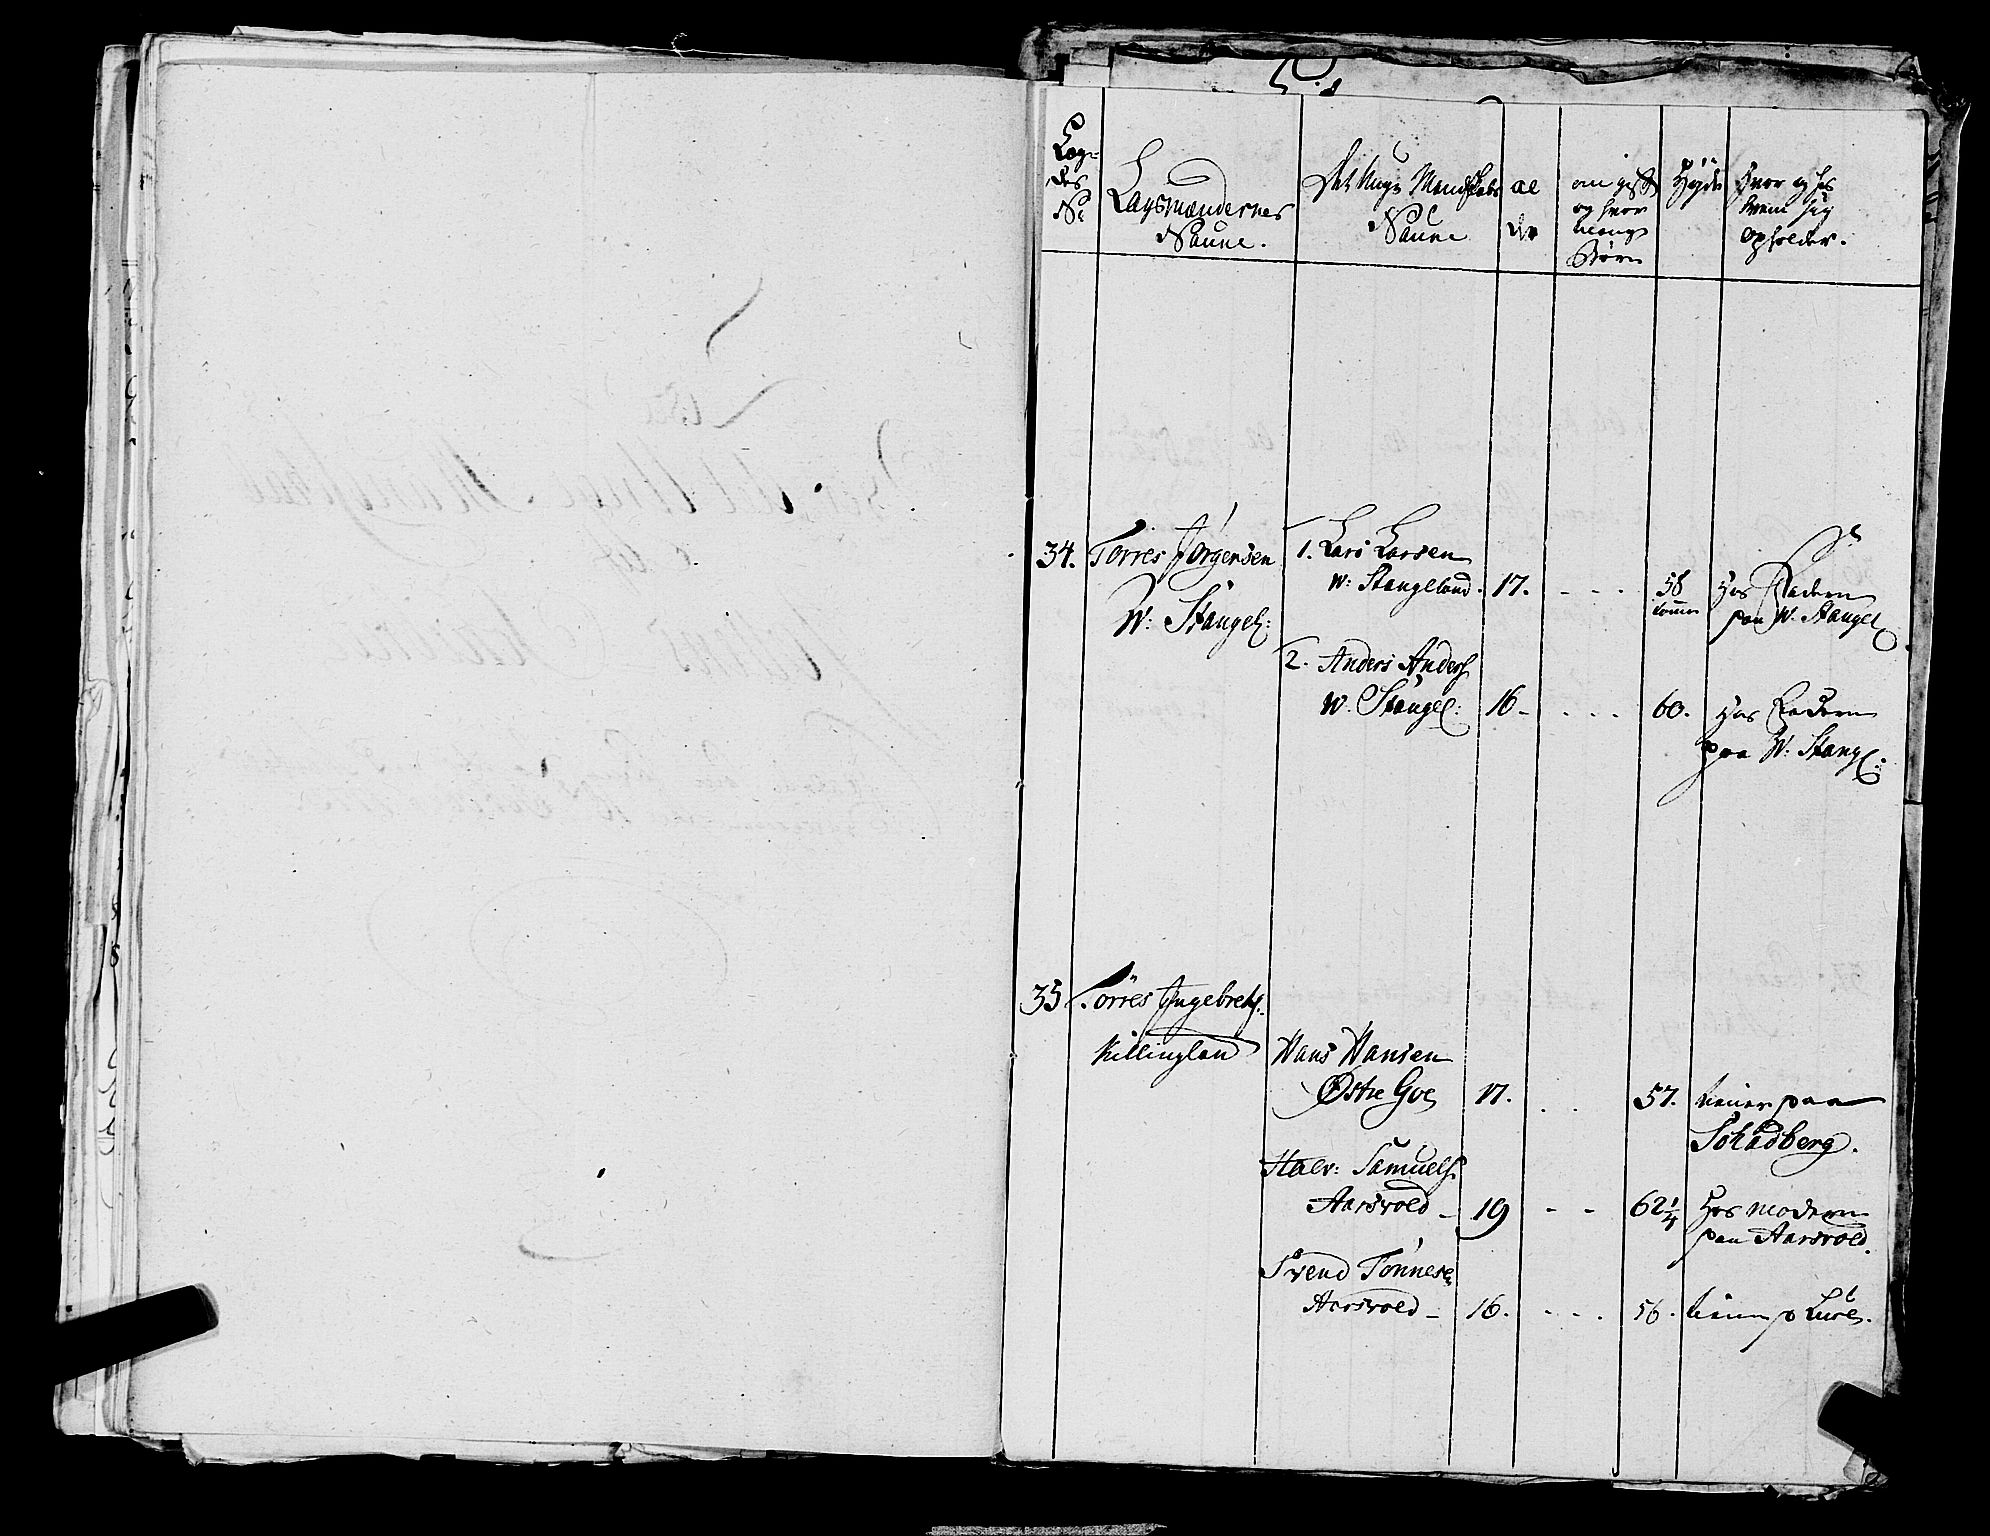 Læg=
des
No
Lagsmændernes
Naune.
Det Unge Mandskabs
Naune
al
der
om gift
og hvor
mange
Børn
Høyde
hvor og hos
hvem sig
opholder.
34.
Torres Jørgensen
W: Stangel:
1. Lars Larsen
W: Stangeland.
17.
58
tomer
hos Faderen
paa W. Stangel
2. Anders Anders
W. Stangel:
16
60.
hos Faderen
paa W: Stangl:
35
Torres Ingebrets:
Killingland
Hans Hansen
Østre Goe
17.
57.
tiener paa
Schadberg.
Halv: Samuels:
Aarsvold
19
62 1/4
hos moderen
paa Aarsvold.
Svend Tønnese
Aarsvold
16.
56.
tiener p